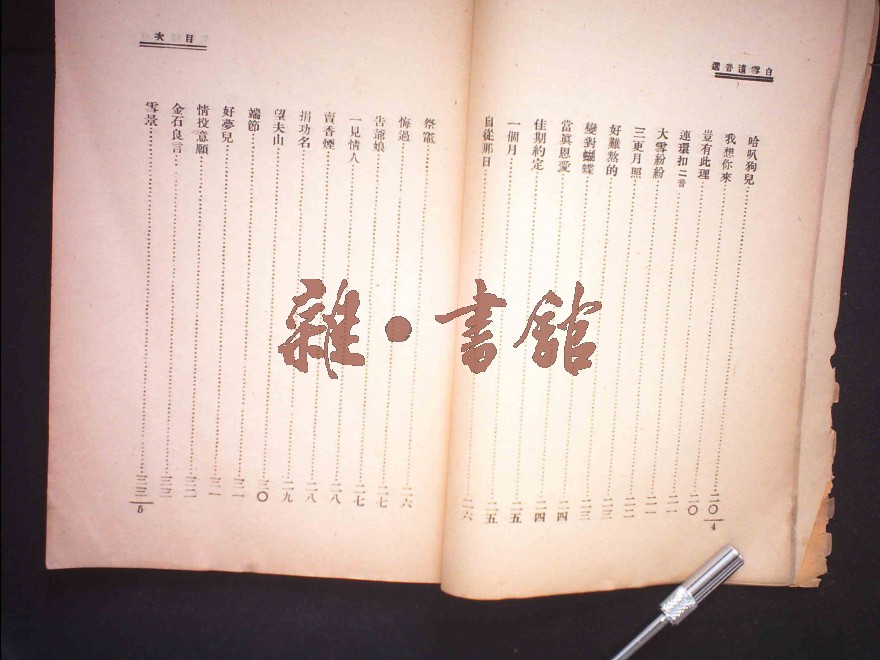 白雪遺音選
哈叭狗兒……二〇
我想你來……二〇
豈有此理……二一
連環扣二音……二一
大雪紛紛……二二
三更月照……二三
好難熬的……二三
變對蝴蝶……二四
當眞恩愛……二四
佳期約定……二五
一個月……二五
自從那日……二六
4
目次
祭竈……二六
悔過……二七
告爺娘……二七
一見情人……二八
賣香煙……二八
捐功名……二九
望夫山……三〇
端節……三一
好夢兒……三一
情投意願……三二
金石良言……三三
雪景……三三
5
雜·書館